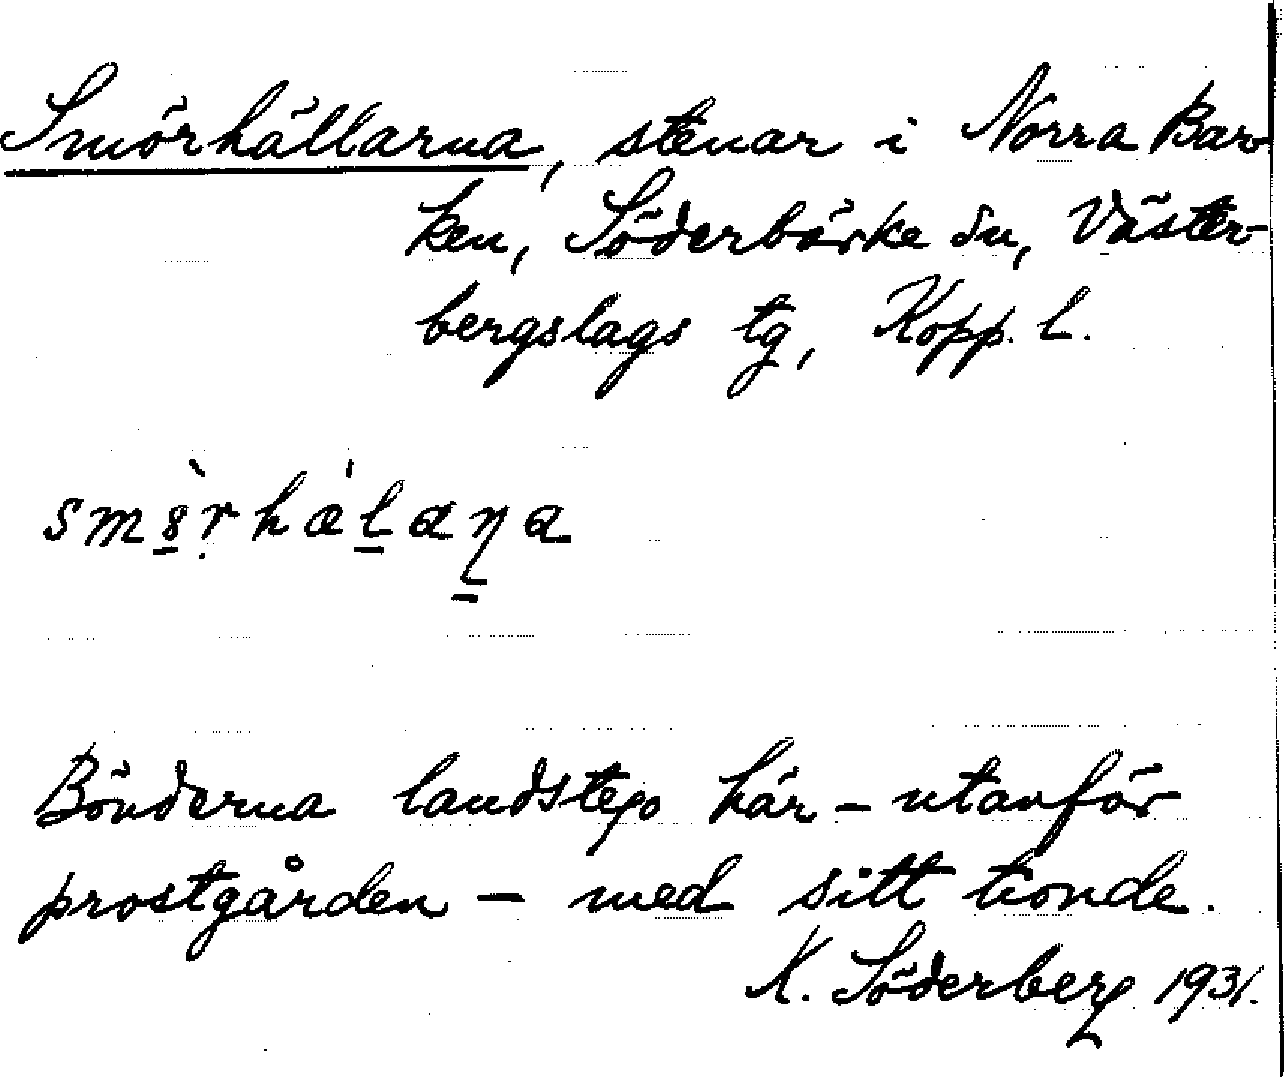 Smörhällarna, stenar i Norra Bar-
ken, Söderbärke sn, Väster-
bergslags tg, Kopp. l.
Bönderna landstego här – utanför
prostgården – med sitt tionde.
K. Söderberg 1931.